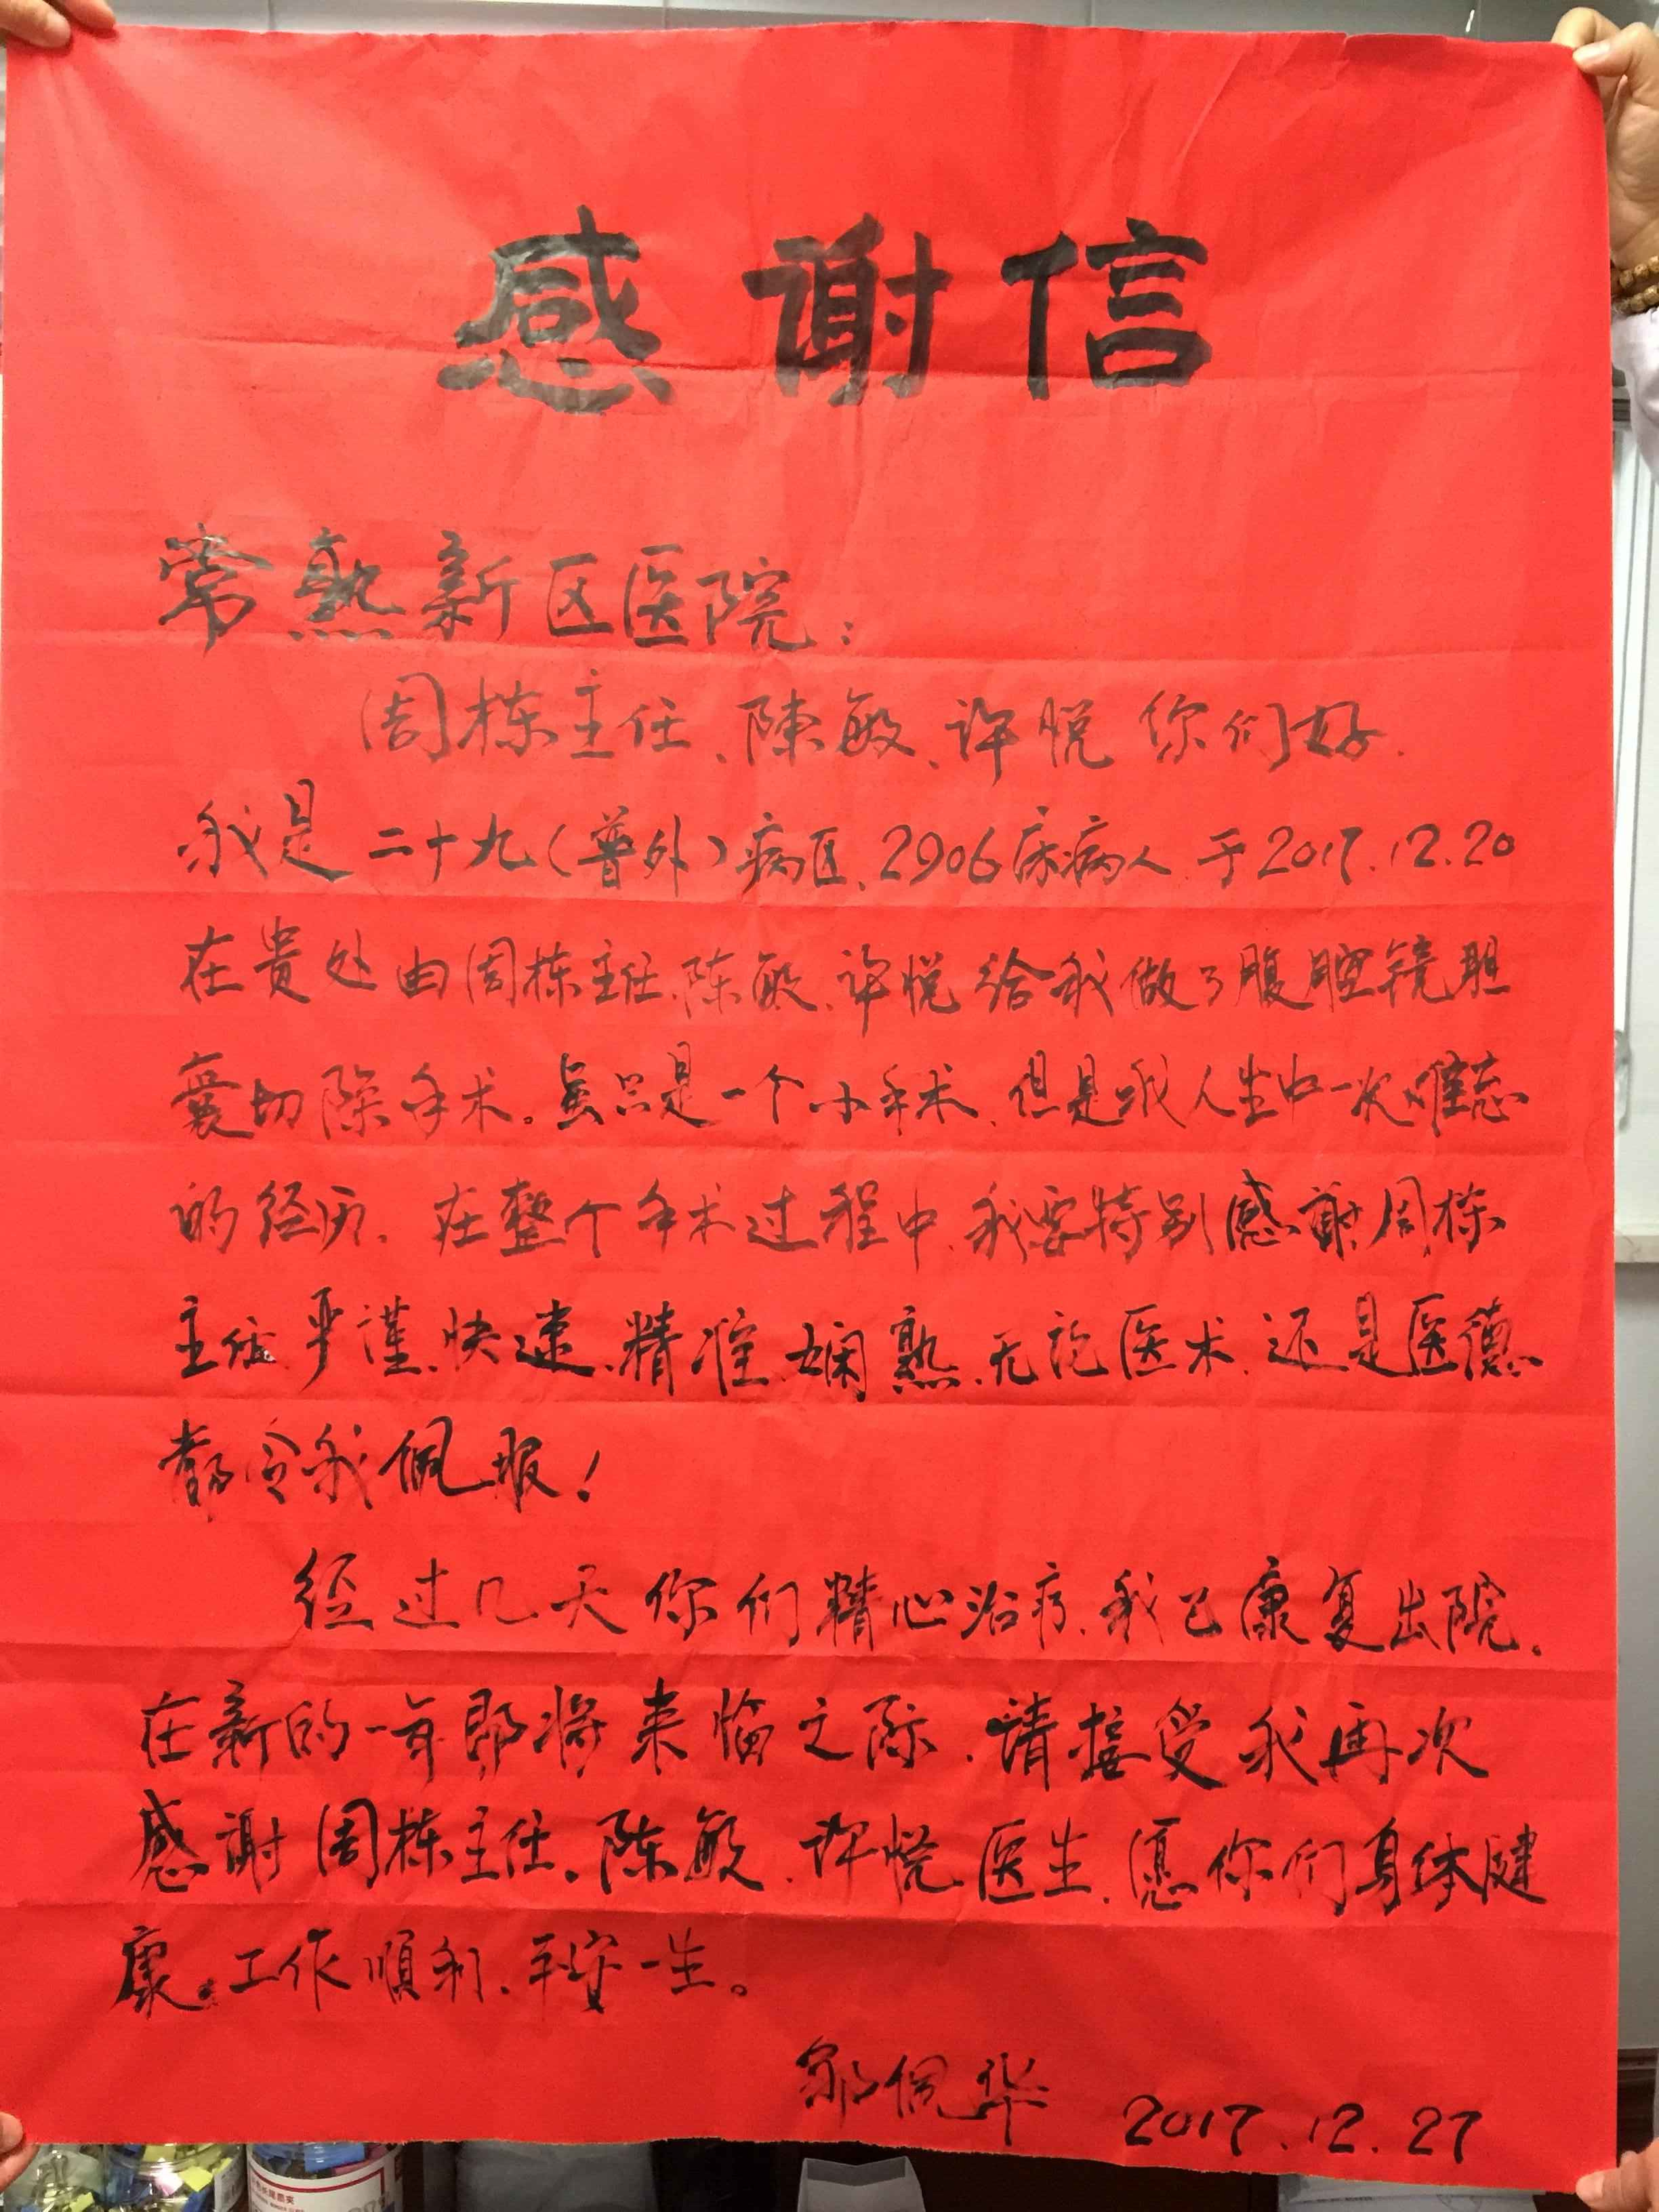 感谢信
常熟新区医院:
周栋主任、陳敏、许悦你们好.
我是二十九(普外)病区、2906床病人.于2017.12.20
在贵处由周栋主任、陈敏、许悦给我做了腹腔镜胆
囊切除手术。虽只是一个小手术、但是我人生中一次难忘
的经历.在整个手术过程中、我要特别感谢周栋
主任严谨、快速、精准、娴熟、无论医术、还是医德
都令我佩服!
经过几天你们精心治疗、我已康复出院.
在新的一年即将来临之际.请接受我再次
感谢周栋主任、陈敏、许悦医生、愿你们身体健
康。工作順利、平安一生。
邹佩华 2017.12.27